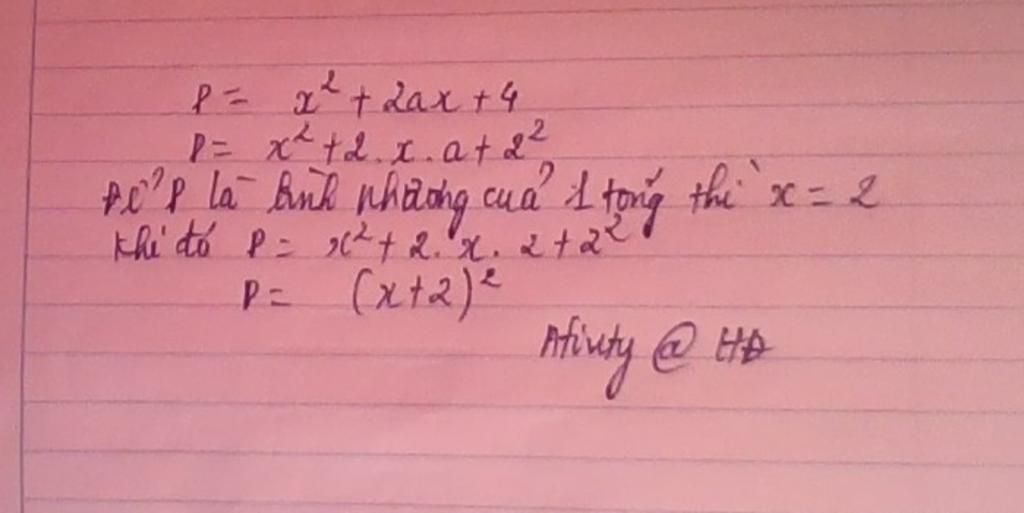 P = x² + 2ax + 4
P = x² + 2 . x . a + 2²
Để P là bình phương của 1 tổng thì x = 2
Khi đó P = x² + 2 . x . 2 + 2²
P = (x+2)²
@ HĐ